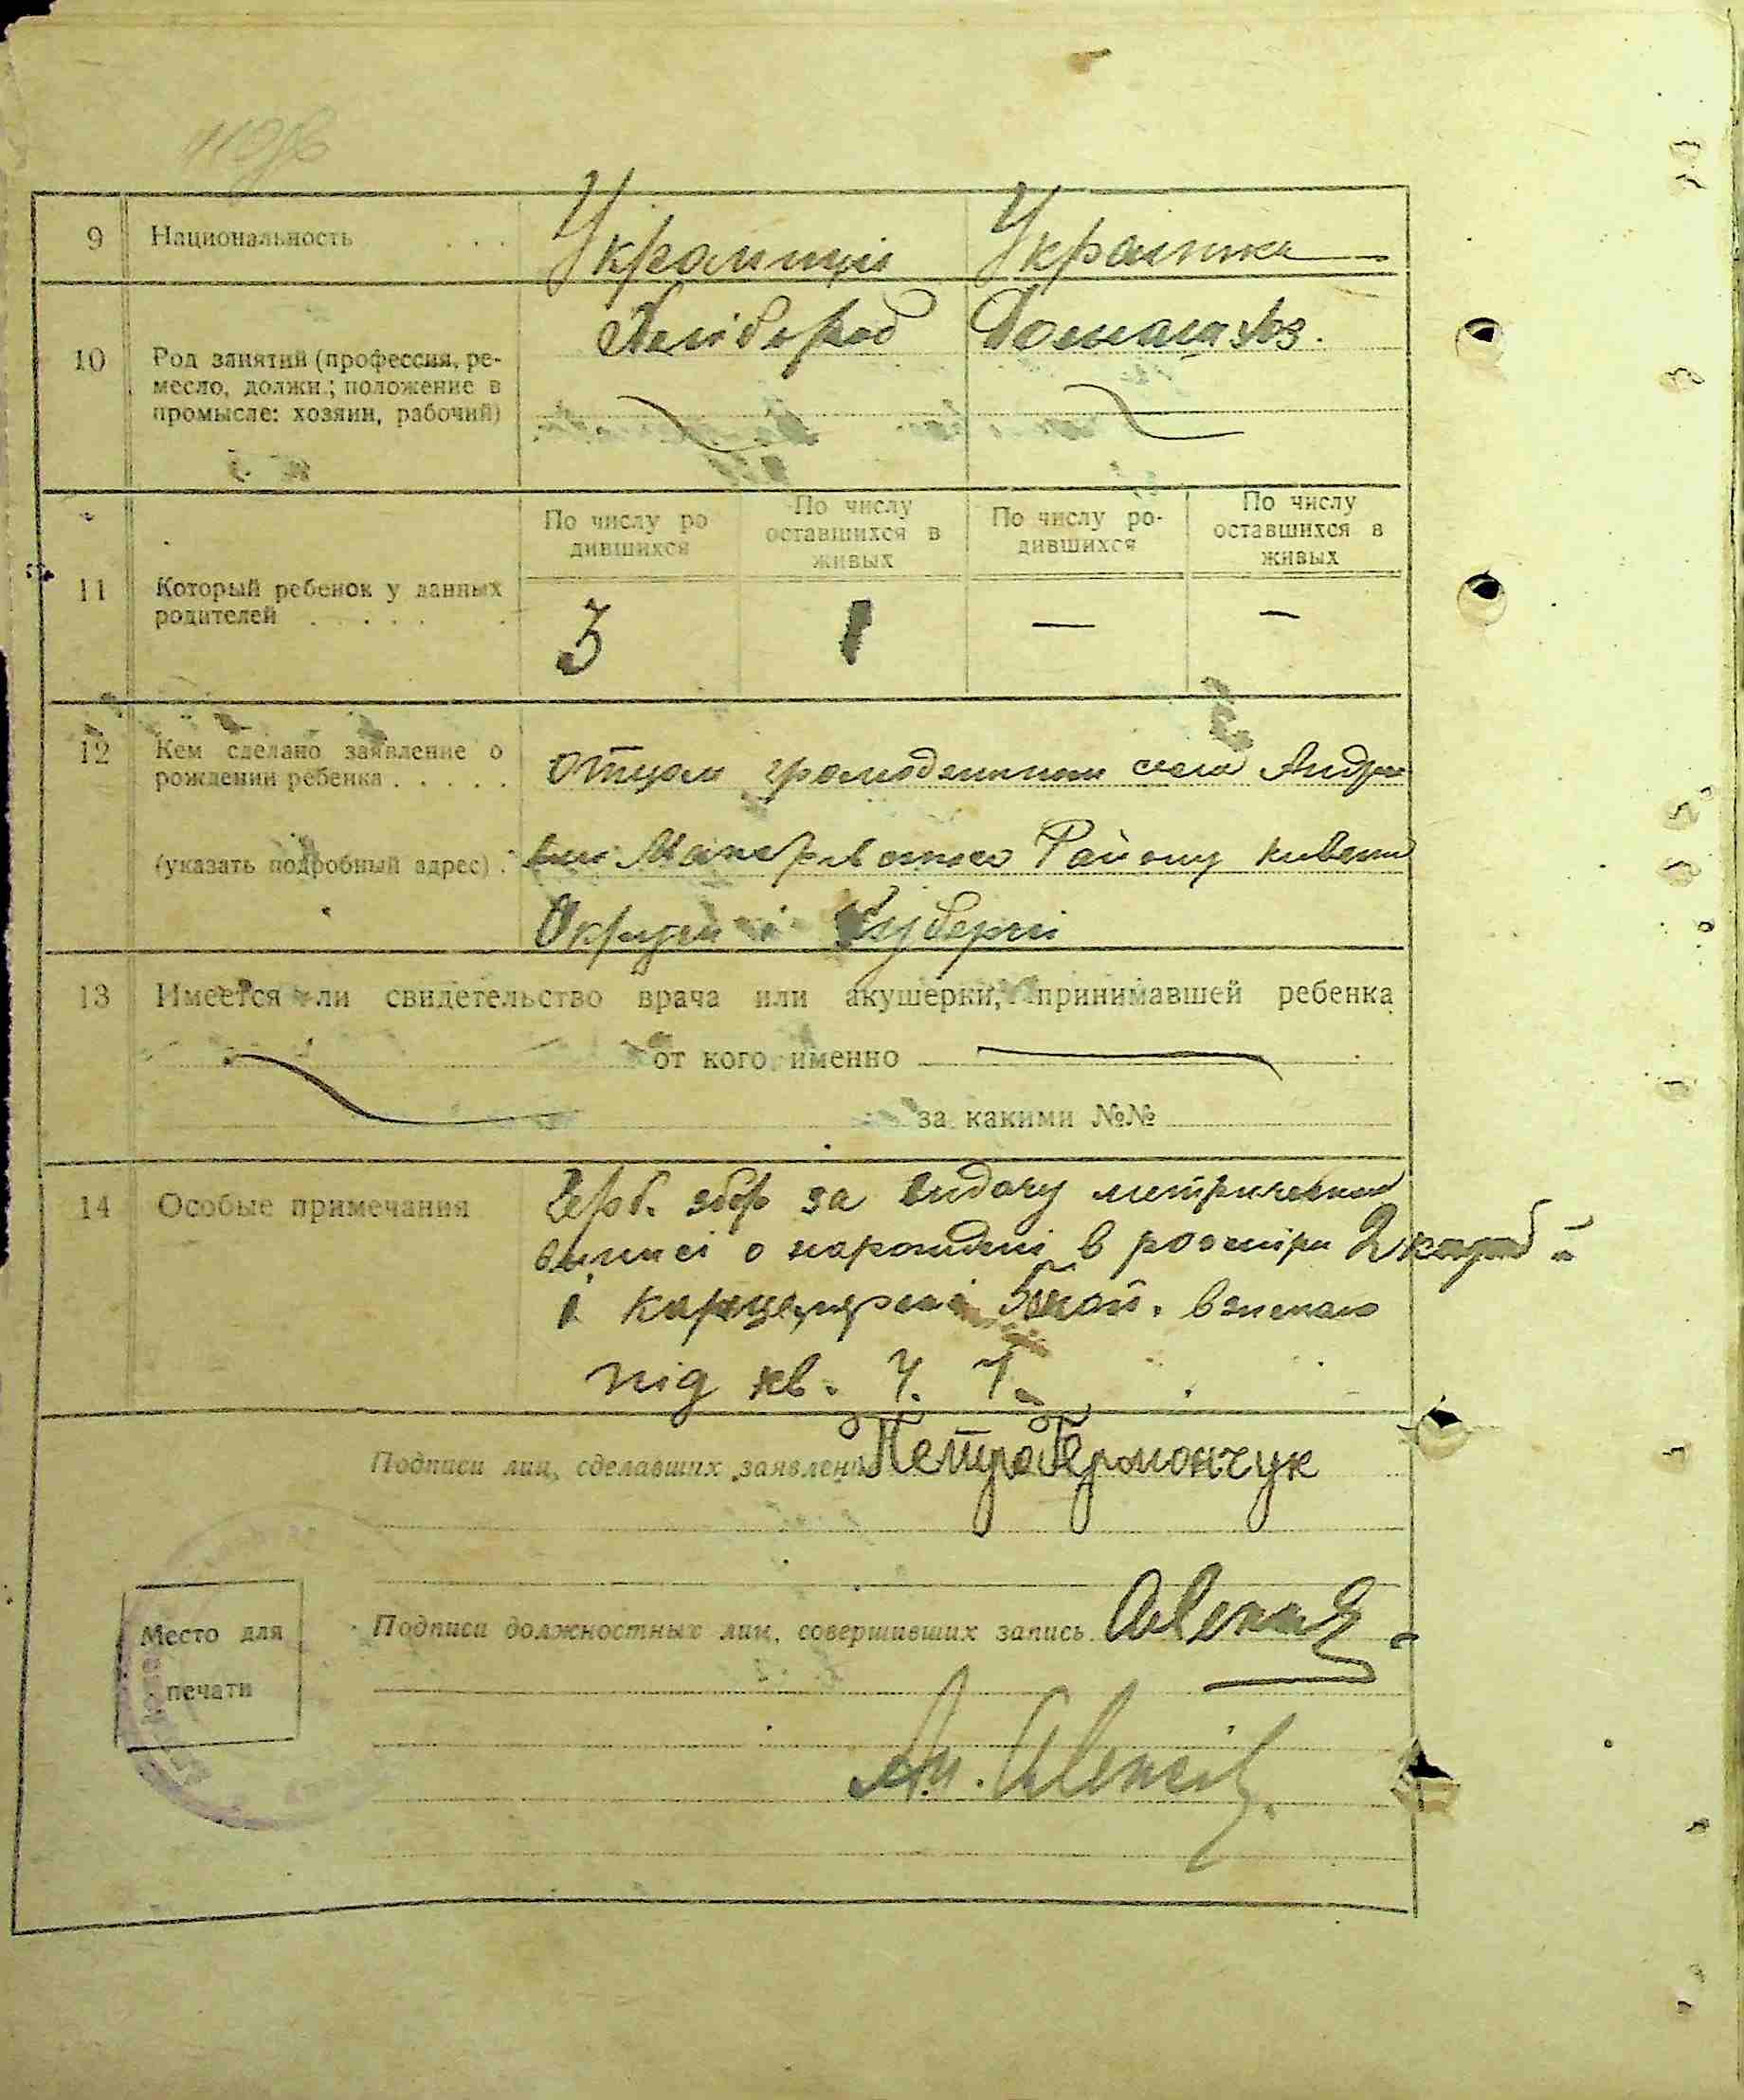 9 Национальность . . . Украинці Украінка
10 Род занятий (профессия, ре-
месло, должн.; положение в
промысле: хозяин, рабочий)
Хлібороб Домашхоз.
По числу ро
дившихся
По числу
оставшихся в
живых
По числу ро-
дившихся
По числу
оставшихся в
живых
11 Который ребенок у данных
родителей . . . . .
3 1 — —
12 Кем сделано заявление о
рождении ребенка . . . . .
отцом громодянином села Андри
(указать подробный адрес) .
Макарівського Району Киевськ
Округи і Губерні
13 Имеется ли свидетельство врача или акушерки, принимавшей ребенка
от кого именно
за какими №№
14 Особые примечания
Герб. збор за видачу метрической
виписі о нарождені в розмірі 2 карб
і канцелярскі 5 коп. взискано
під кв. Ч. 1.
Подписи лиц, сделавших заявлени Петро Гермончук
Подписи должностных лиц, совершивших запись
Место для
печати